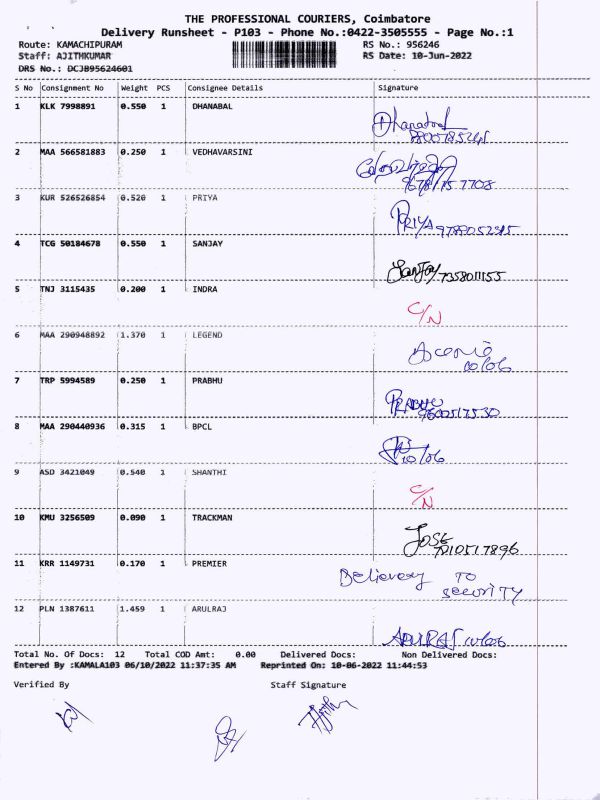 THE PROFESSIONAL COURIERS, Coimbatore
Delivery Runsheet - P103 - Phone No.:0422-3505555 - Page No.:1
Route: KAMACHIPURAM RS No.: 956246
Staff: AJITHKUMAR RS Date: 10-Jun-2022
DRS No.: DCJB95624601
S No Consignment No Weight PCS Consignee Details Signature
1 KLK 7998891 0.550 1 DHANABAL Dhanabal
2 MAA 566581883 0.250 1 VEDHAVARSINI
3 KUR 526526854 0.520 1 PRIYA PRIYA
4 TCG 50184678 0.550 1 SANJAY Sanjay 7358011155
5 TNJ 3115435 0.200 1 INDRA C/N
6 MAA 290948892 1.370 1 LEGEND
10/06
7 TRP 5994589 0.250 1 PRABHU PRABHU
9600517530
8 MAA 290440936 0.315 1 BPCL
10/06
9 ASD 3421049 0.540 1 SHANTHI C/N
10 KMU 3256509 0.090 1 TRACKMAN JOSE
7010517896
11 KRR 1149731 0.170 1 PREMIER Delievery TO
security
12 PLN 1387611 1.459 1 ARULRAJ ARULRAJ
Total No. Of Docs: 12 Total COD Amt: 0.00 Delivered Docs: Non Delivered Docs:
Entered By :KAMALA103 06/10/2022 11:37:35 AM Reprinted On: 10-06-2022 11:44:53
Verified By Staff Signature